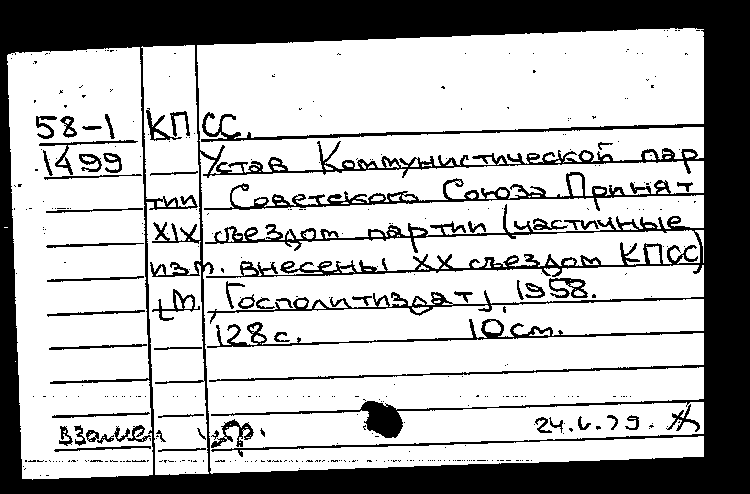 58-1 КПСС.
1499 Устав Коммунистической пар
тии Советского Союза. Принят
XIX съездом партии (частичные
изм. внесены XX съездом КПСС)
[М., Госполитиздат], 1958.
128 с. 10 см.
взамен 24.V.79.